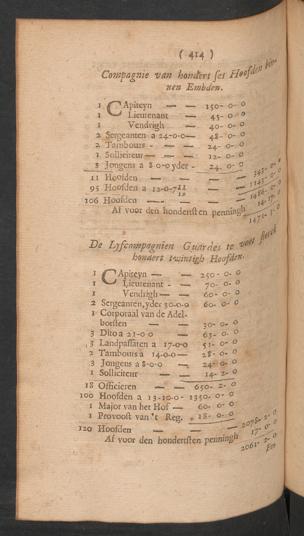 ( 414 )
Compagnie van honders ses Hoofden bin-
nen Embden.
1 CApiteyn — — 150-0-0
1 Lieutenant — 45-0-0
1 Vendrigh — — 40-0-0
2 Sergeanten a 24-0-0— 48-0-0
2 Tambours - — — 24-0-0
1 Solliciteur — — 12-0-0
3 Jongens a 8-0-0 yder - 24-0-0
11 Hoofden — — 343-0-0
95 Hoofden a 12-0-7 11/12 — 1143-0-0
106 Hoofden — — 1486-0-0
Af voor den hondersten penningh 14-17-0
1471-3-0
De Lyfcompagnien Guardes te voet sterck
honderd twintigh Hoofden.
1 CApiteyn — — 250-0-0
1 Lieutenant - — 70-0-0
1 Vendrigh — — 60-0-0
2 Sergeanten, yder 30-0-0 60-0-0
1 Corporaal van de Adel-
borsten — — 30-0-0
3 Dito a 21-0-0 — 63-0-0
3 Landpassaten a 17-0-0 51-0-0
2 Tambours a 14-0-0 — 28-0-0
3 Jongens a 8-0-0 — 24-0-0
1 Solliciteur — — 14-2-0
18 Officieren — — 650-2-0
100 Hoofden a 13-10-0- 1350-0-0
1 Major van het Hof — 60-0-0
1 Provoost van 't Reg. 18-0-0
120 Hoofden — — 2078-2-0
Af voor den hondersten penningh 17-0-0
2061-2-0